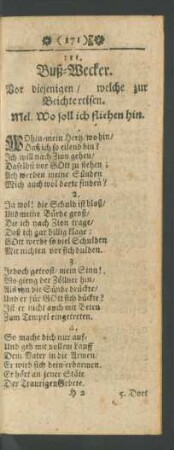 (171)
111.
Buß-Wecker.
Vor diejenigen/ welche zur
Beichte reisen.
Mel. Wo soll ich fliehen hin.
WOhin, mein Hertz, wohin/
Daß ich so eilend bin?
Ich will nach Zion gehen/
Daselbst vor GOtt zu stehen;
Ach werden meine Sünden
Mich auch wol dorte finden?
2.
Ja wol! die Schuld ist bloß/
Und meine Bürde groß/
Die ich nach Zion trage/
Daß ich gar billig klage:
GOtt werde so viel Schulden
Mit nichten vor sich dulden.
3.
Jedoch getrost/ mein Sinn!
Wo gieng der Zöllner hin/
Als ihn die Sünde drückte/
Und er für GOtt sich bückte?
Ist er nicht auch mit Beten
Zum Tempel eingetreten.
4.
So mache dich nur auf/
Und geh mit vollem Lauff
Dem Vater in die Armen/
Er wird sich dein erbarmen.
Er hört an jener Stäte
Der Traurigen Gebete.
H 2 5. Dort